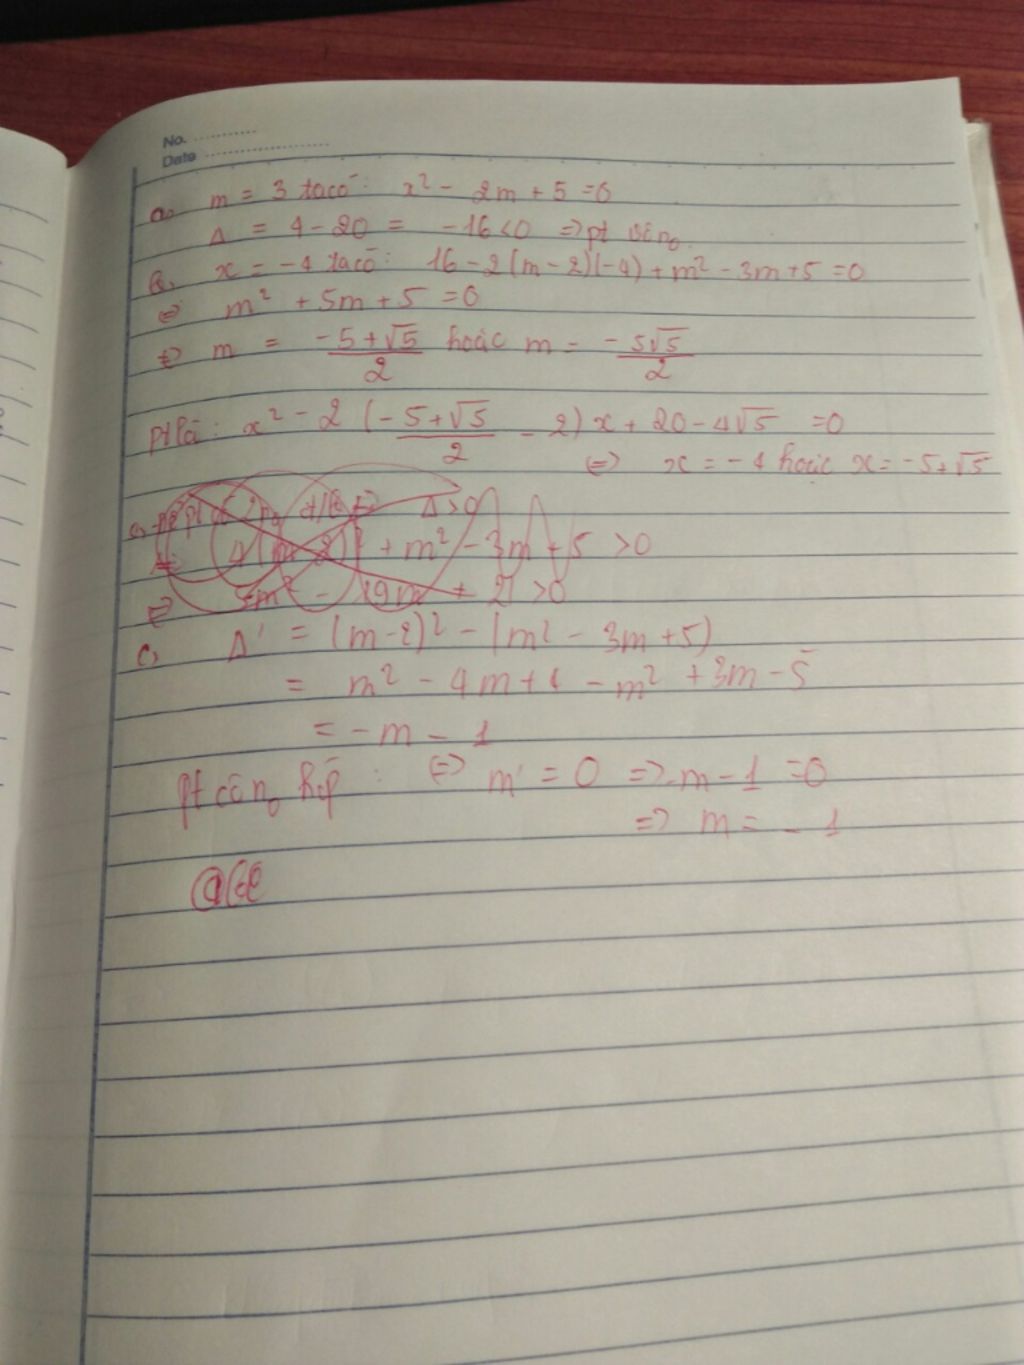 No.
Date
a, m = 3 ta có: x² - 2m + 5 = 0
Δ = 4 - 20 = -16 < 0 => pt vô no
b, x = -4 ta có: 16 - 2(m - 2)(-4) + m² - 3m + 5 = 0
<=> m² + 5m + 5 = 0
<=> m = (-5 + √5)/2 hoặc m = (-5√5)/2
pt là: x² - 2((-5 + √5)/2 - 2)x + 20 - 4√5 = 0
<=> x = -4 hoặc x = -5 + √5
Δ > 0
+ m² - 3m + 5 > 0
+ 21 > 0
c, Δ' = (m - 2)² - (m² - 3m + 5)
= m² - 4m + 4 - m² + 3m - 5
= -m - 1
pt có no kép : <=> m' = 0 => -m - 1 = 0
=> m = -1